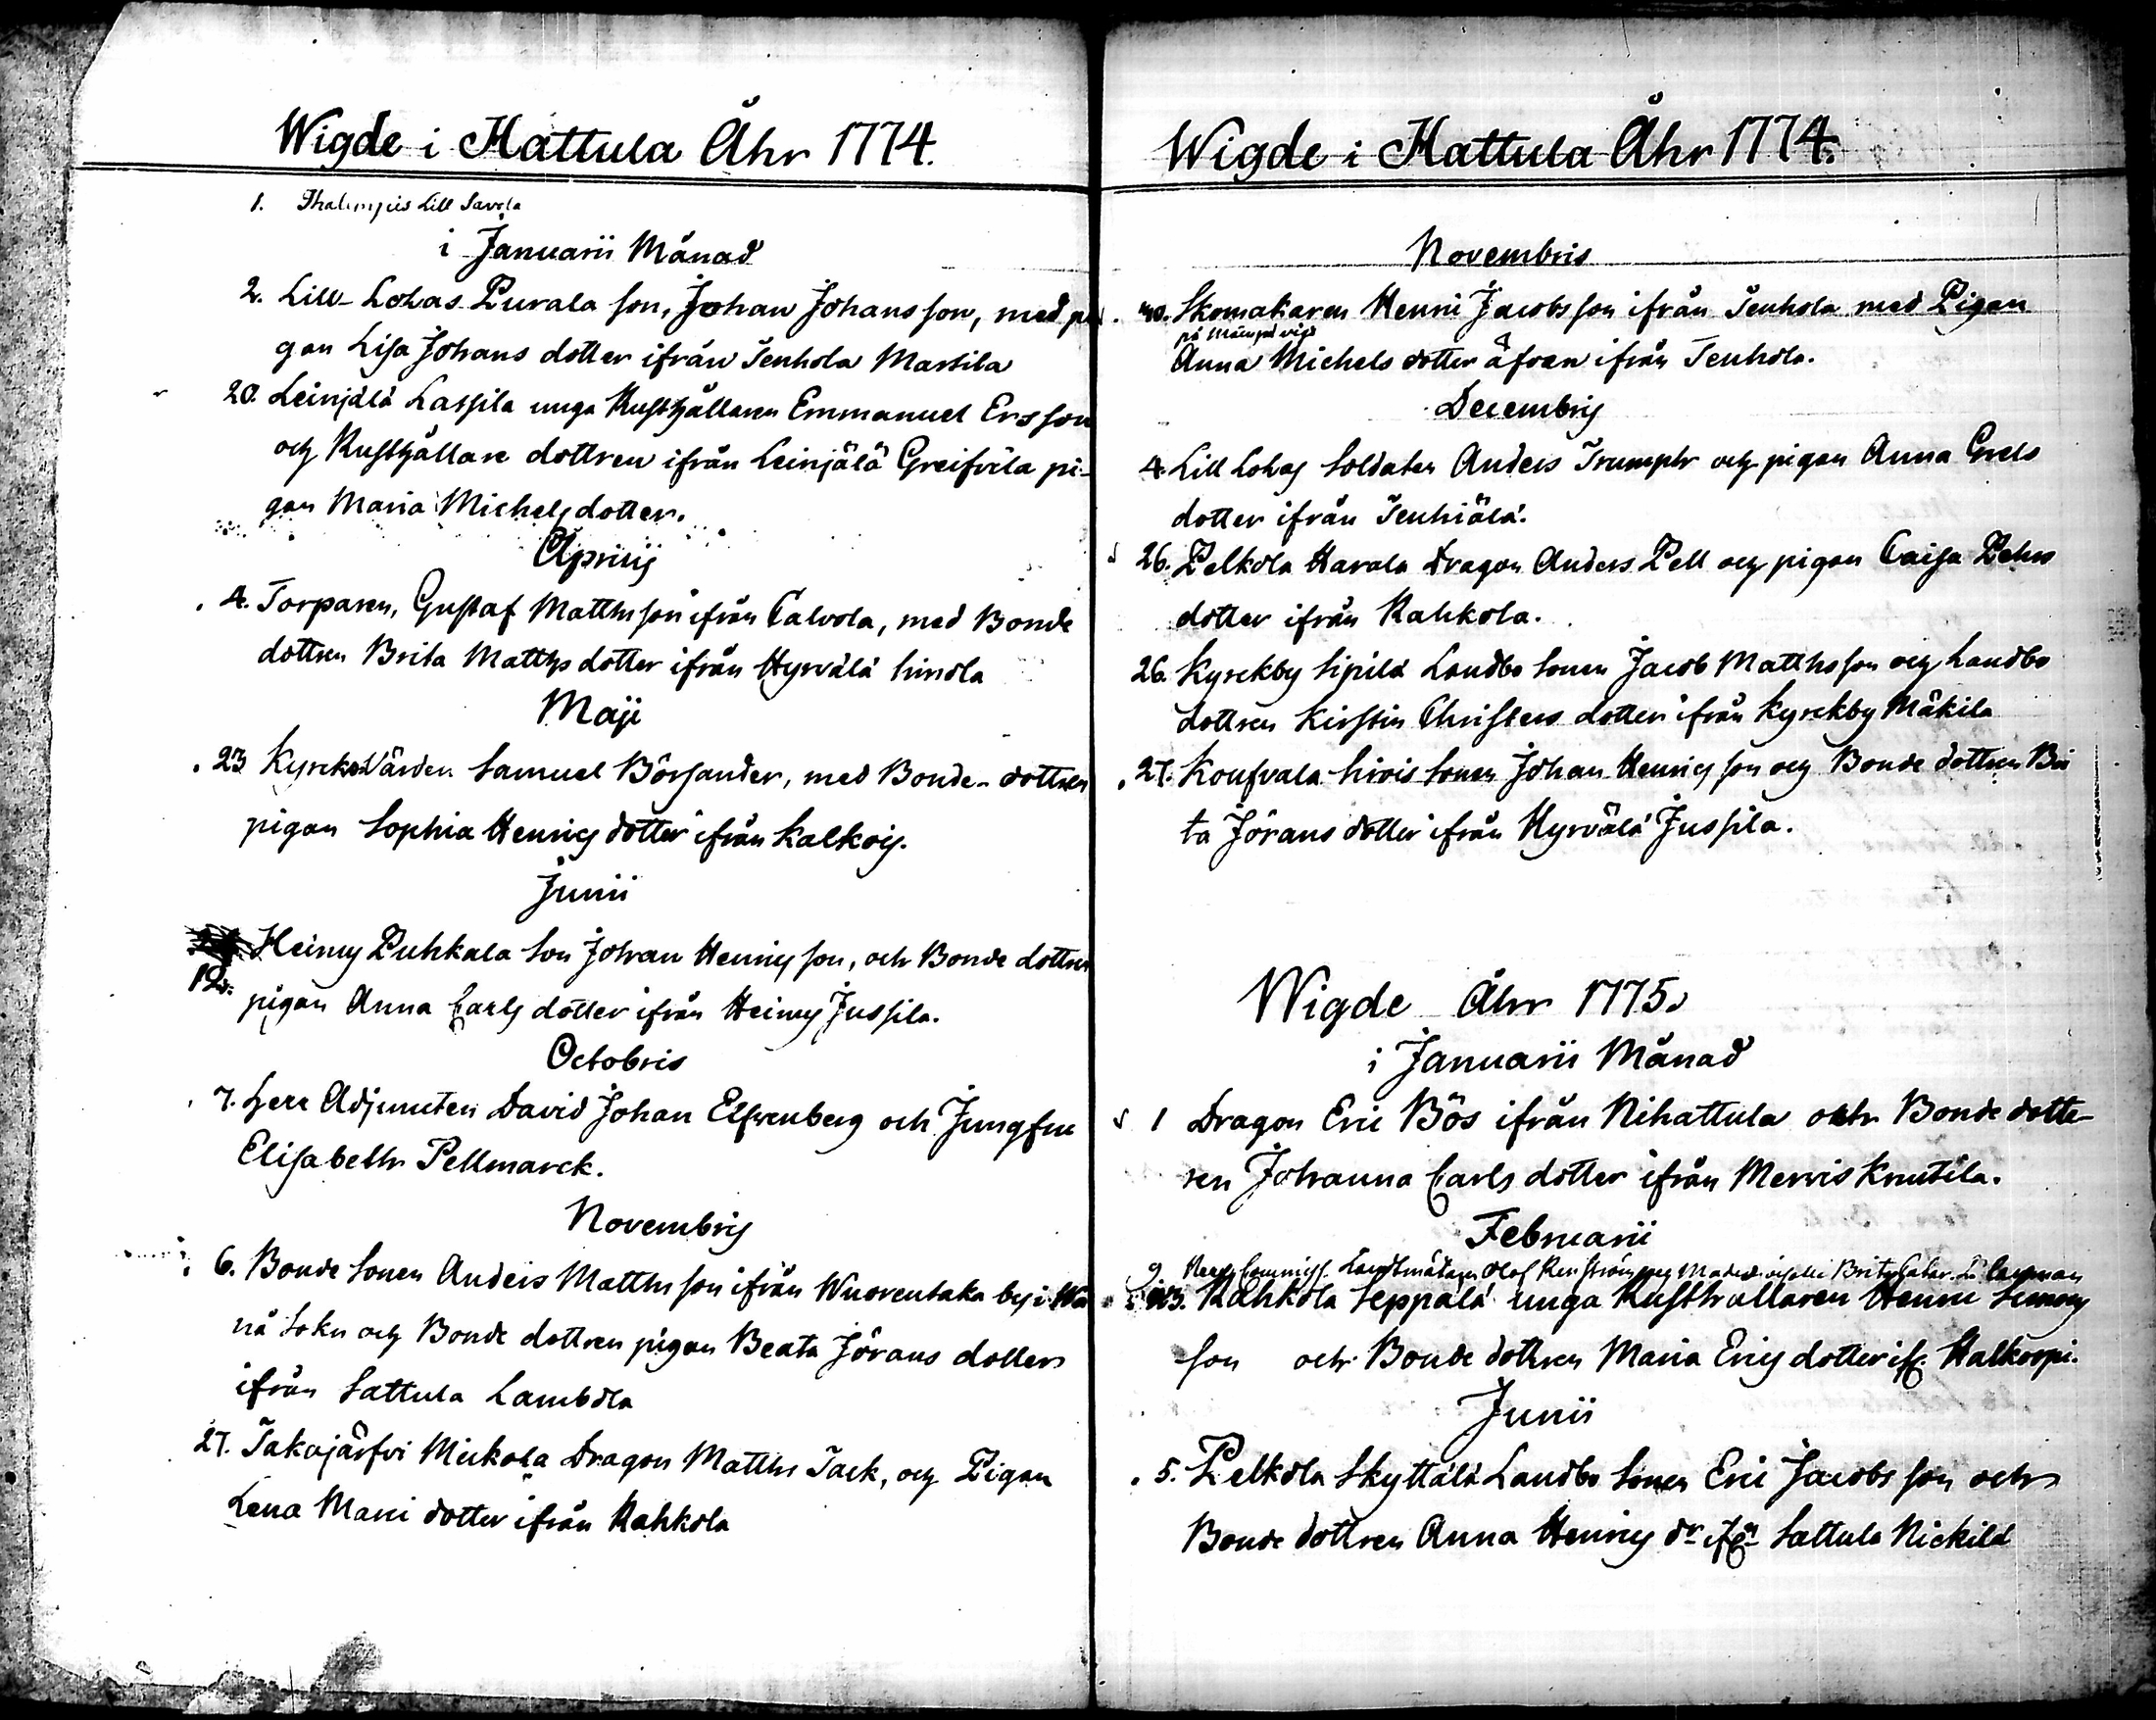 Wigde i Hattula Åhr 1774.
1. Lill Savola
i Januarii Månad
2. Lill-Lohas Purala son, Johan Johansson, med pi
gan Lisa Johans dotter ifrån Tenhola Marttila
20. Leinjälä Lassila unga Rusthållaren Emmanuel Ersson
och Rusthållare dottren ifrån Leinjälä Greifvila pi-
gan Maria Michels dotter.
Aprilis
4. Torparen, Gustaf Matths son ifrån Calvola, med Bonde
dottren Brita Matths dotter ifrån Hyrvälä
Maji
23 KyrckoVärden Samuel Börsander, med Bonde-dottren
pigan Sophia Henrics dotter ifrån Kalkois.
Junii
19. Heinus Puhkala Son Johan Henrics son, och Bonde dottren
pigan Anna Carls dotter ifrån Heinus Jussila.
Octobris
7. Herr Adjuncten David Johan Elfvenberg och Jungfru
Elisabeth Pellmarck.
Novembris
6. Bonde Sonen Anders Matths son ifrån Wuorentaka by i Wå
nå Sokn och Bonde dottren pigan Beata Jörans dotter
ifrån Sattula Lambola
27. Takajärfvi Mickola Dragon Matths Tack, och Pigan
Lena Mari dotter ifrån Rahkola
Wigde i Hattula Åhr 1774.
Novembris
Skomakaren Henric Jacobs son ifrån Tenhola med Pigan
på
Anna Michels dotter äfven ifrån Tenhola.
Decembris
4. Lill Lohas Soldaten Anders Trumph och pigan Anna Grels
dotter ifrån Tenhiälä.
26. Pelkola Harala Dragon Anders Pell och pigan Caisa Pehrs
dotter ifrån Rahkola.
26. Kyrckby Sipilä Landbo Sonen Jacob Matths son och Landbo
dottren Kirstin Christers dotter ifrån Kyrckby Mäkila
27. Koufvala Hivois Sonen Johan Henrics son och Bonde dottren Bri
ta Jörans dotter ifrån Hyrvälä Jussila.
Wigde Åhr 1775.
i Januarii Månad
1 Dragon Eric Bös ifrån Nihattula och Bonde dott-
ren Johanna Carls dotter ifrån Mervis Knutila.
Februarii
9 Landtmätaren Olof
Rahkola Seppälä unga Rusthållaren Henric Simons
son och Bonde dottren Maria Erics dotter ifr. Halkorpi.
Junii
5. Pelkola Skyttälä Landbo Sonen Eric Jacobs son och
Bonde dottren Anna Henrics dr ifrån Sattula Nickilä